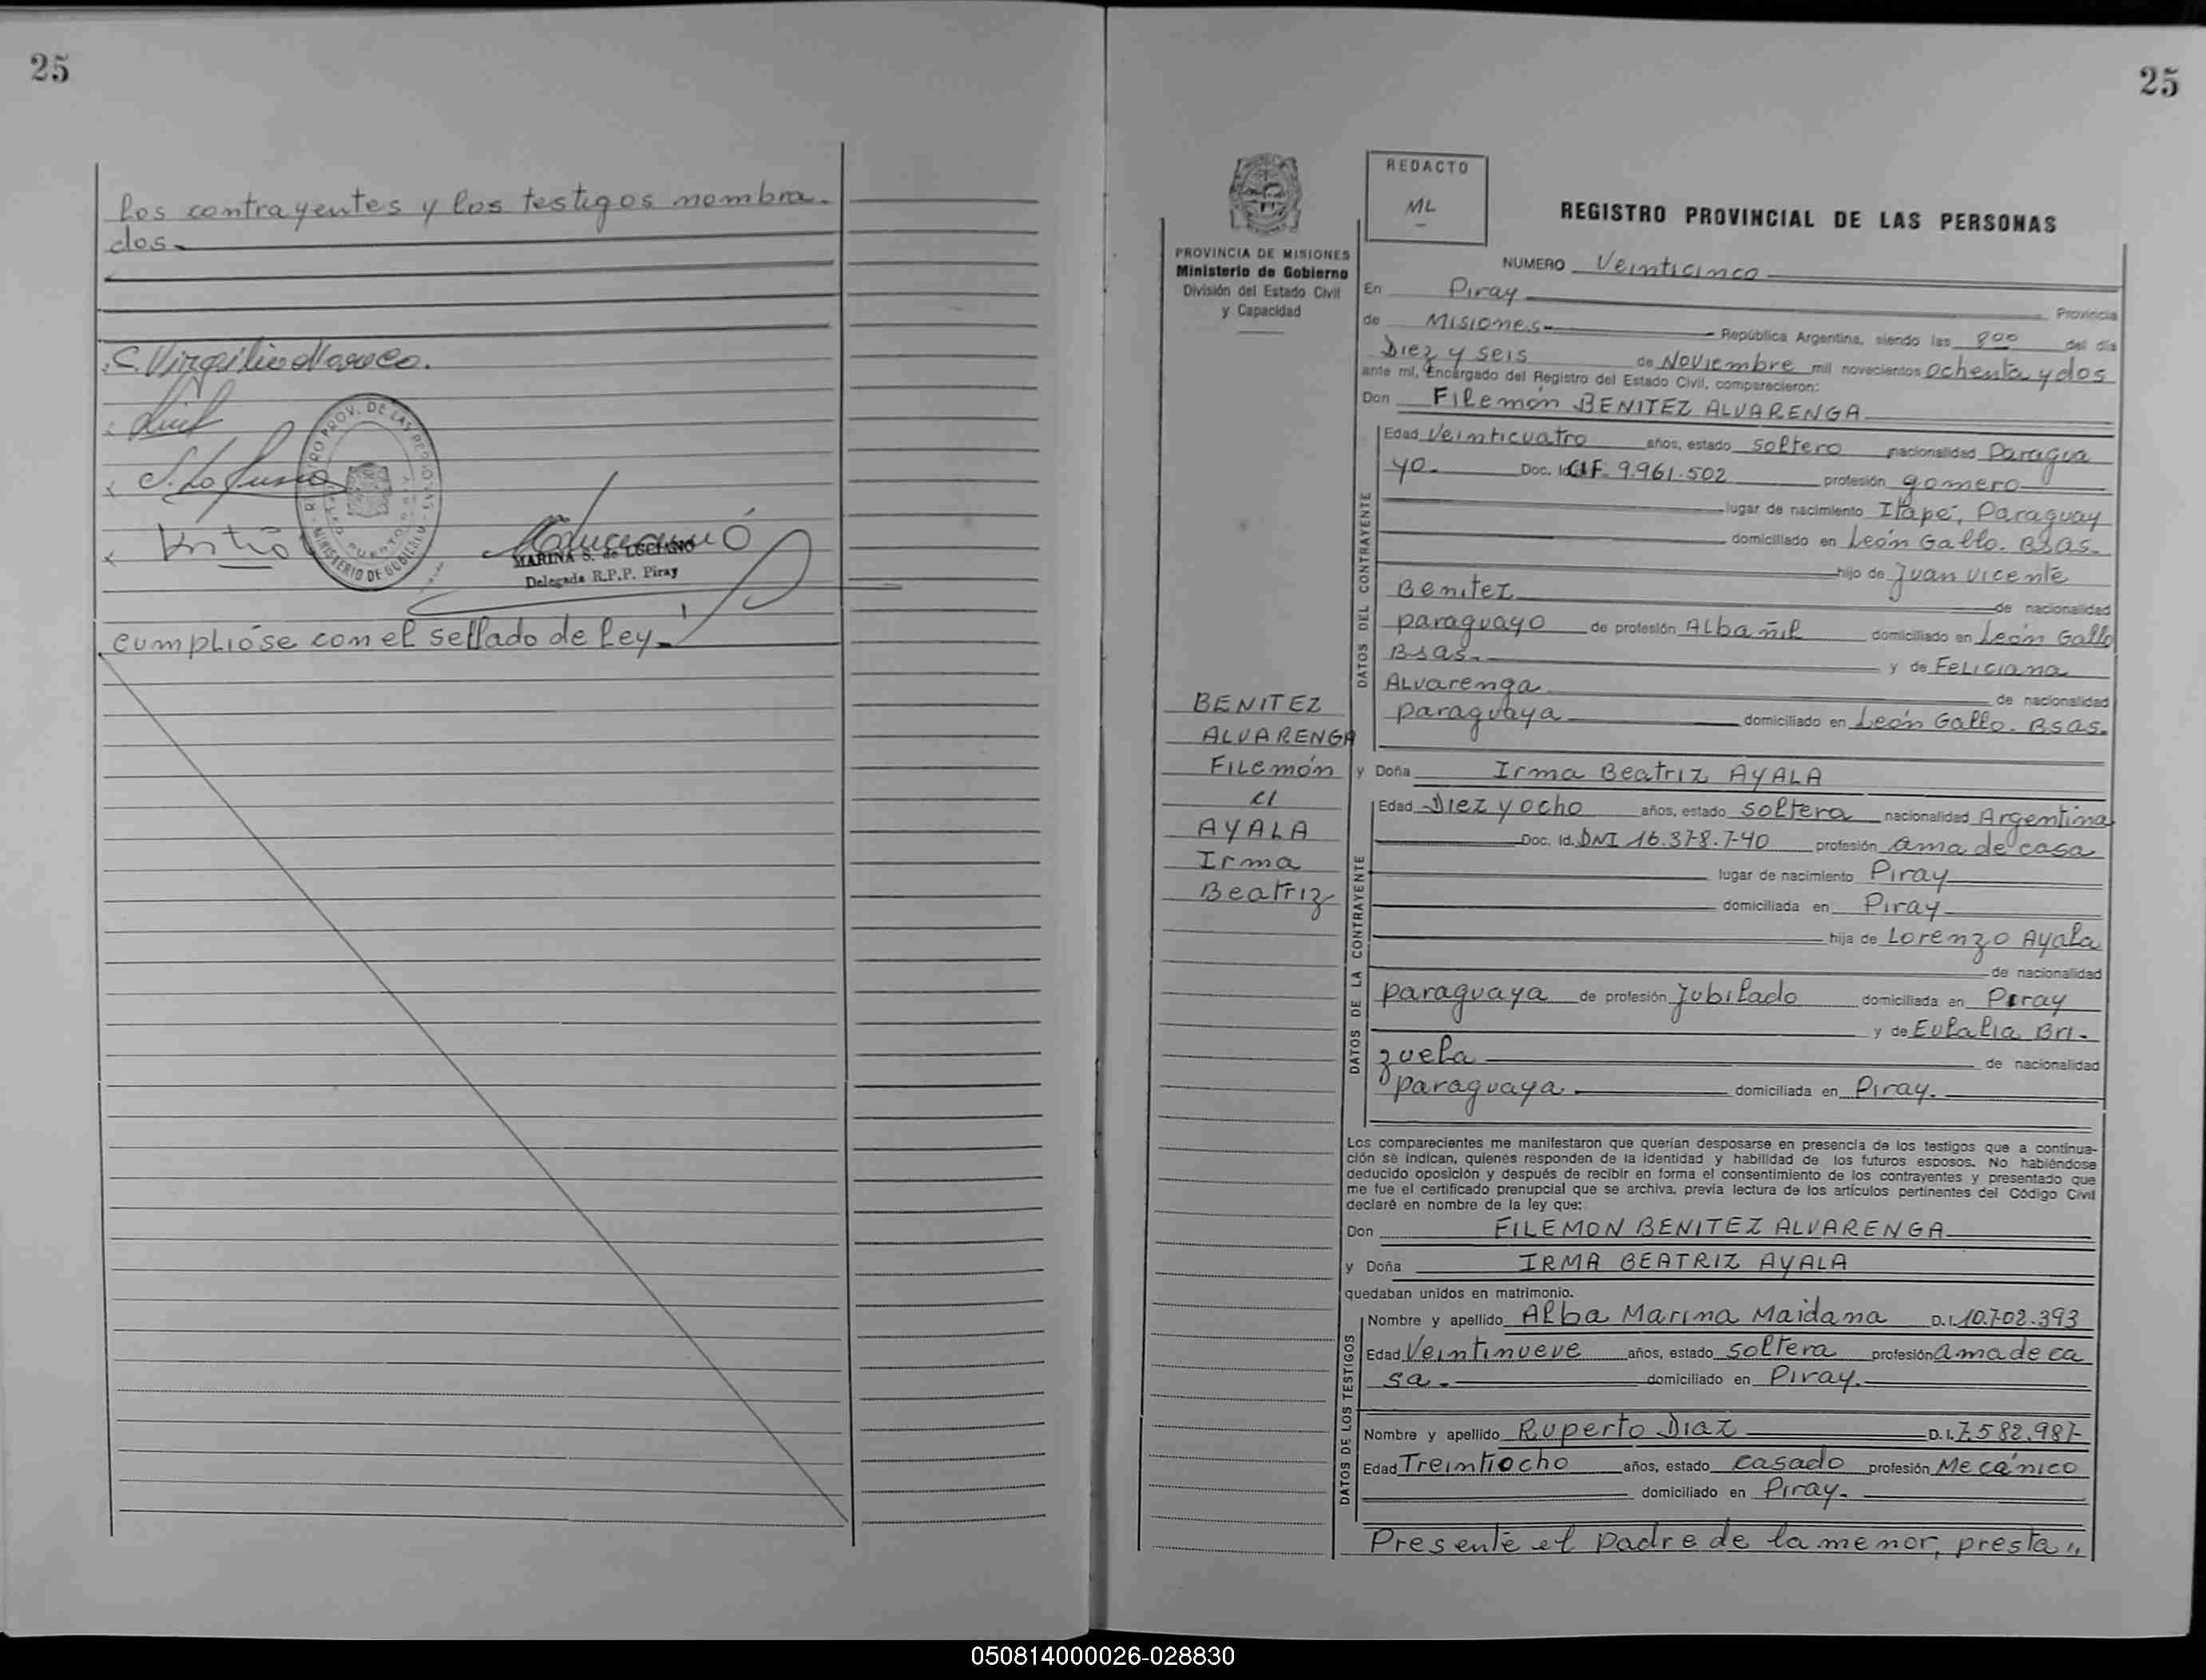 25
los contrayentes y los testigos nombra-
dos.
MARINA S. de LUCIANO
Delegada R.P.P. Piray
cumplióse con el sellado de ley.
25
REDACTO
ML
PROVINCIA DE MISIONES
Ministerio de Gobierno
División del Estado Civil
y Capacidad
REGISTRO PROVINCIAL DE LAS PERSONAS
NUMERO Veinticinco
En Piray Provincia
de Misiones República Argentina, siendo las 800 del día
Diez y seis de Noviembre mil novecientos ochenta y dos
ante mí, Encargado del Registro del Estado Civil, comparecieron:
Don Filemón BENITEZ ALVARENGA
DATOS DEL CONTRAYENTE
Edad Veinticuatro años, estado soltero nacionalidad Paragua
yo. Doc. Id. CIF. 9.961.502 profesión gomero
lugar de nacimiento Itapé, Paraguay
domiciliado en León Gallo. Bsas.
hijo de Juan Vicente
Benitez de nacionalidad
paraguayo de profesión Albañil domiciliado en León Gallo
Bsas. y de Feliciana
Alvarenga de nacionalidad
paraguaya domiciliado en León Gallo. Bsas.
BENITEZ
ALVARENGA
Filemón
c/
AYALA
Irma
Beatriz
y Doña Irma Beatriz AYALA
DATOS DE LA CONTRAYENTE
Edad Diez y ocho años, estado soltera nacionalidad Argentina
Doc. Id. DNI 16.378.740 profesión ama de casa
lugar de nacimiento Piray
domiciliada en Piray
hija de Lorenzo Ayala
de nacionalidad
paraguaya de profesión Jubilado domiciliada en Piray
y de Eulalia Bri-
zuela de nacionalidad
paraguaya domiciliada en Piray.
Los comparecientes me manifestaron que querían desposarse en presencia de los testigos que a continua-
ción se indican, quienes responden de la identidad y habilidad de los futuros esposos. No habiéndose
deducido oposición y después de recibir en forma el consentimiento de los contrayentes y presentado que
me fue el certificado prenupcial que se archiva, previa lectura de los artículos pertinentes del Código Civil
declaré en nombre de la ley que:
Don FILEMON BENITEZ ALVARENGA
y Doña IRMA BEATRIZ AYALA
quedaban unidos en matrimonio.
DATOS DE LOS TESTIGOS
Nombre y apellido Alba Marina Maidana D.I. 10.702.393
Edad Veintinueve años, estado soltera profesión ama de ca
sa. domiciliado en Piray.
Nombre y apellido Ruperto Diaz D.I. 7.582.987
Edad Treintiocho años, estado casado profesión Mecánico
domiciliado en Piray.
Presente el padre de la menor, presta "
050814000026-028830